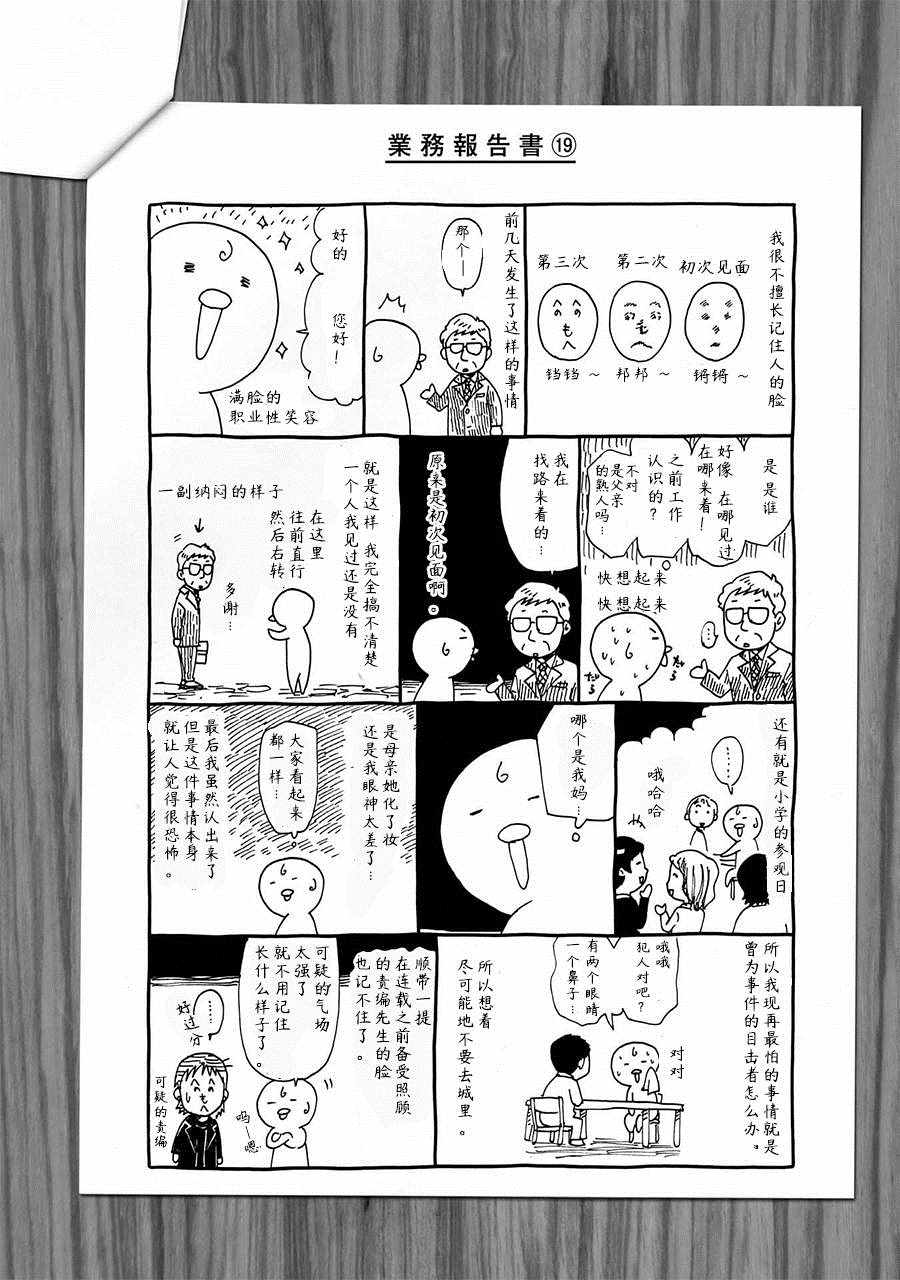 業務報告書⑲
我很不擅长记住人的脸
初次见面
第二次
第三次
锵锵~
邦邦~
铛铛~
前几天发生了这样的事情
那个—
好的
您好!
满脸的
职业性笑容
是 是谁
好像 在哪见过
在哪来着!
之前工作
认识的?
不对
是父亲
的熟人吗…
快想起来
快想起来
…
だら
だら
我在
找路来着的…
原来是初次见面啊。
就是这样 我完全搞不清楚
一个人我见过还是没有
在这里
往前直行
然后右转
多谢…
一副纳闷的样子
还有就是小学的参观日
……
哦哈哈
哪个是我妈…
是母亲她化了妆
还是我眼神太差了…
大家看起来
都一样…
最后我虽然认出来了
但是这件事情本身
就让人觉得很恐怖。
所以我现再最怕的事情就是
曾为事件的目击者怎么办。
哦哦
犯人对吧?
有两个眼睛
一个鼻子…
对对
所以想着
尽可能地不要去城里。
顺带一提
在连载之前备受照顾
的责编先生的脸
也记不住了。
可疑的气场
太强了
就不用记住
长什么样子了。
呜—
嗯
……
好过分
可疑的责编